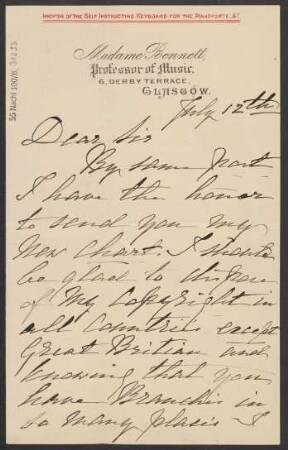 INVENTOR OF THE SELF INSTRUCTING KEYBOARD FOR THE PIANOFORTE, &c
Madame Bennett,
Professor of Music,
6, DERBY TERRACE,
GLASGOW.
July 12th
Dear Sir
By same post
I have the honor
to send you my
New Chart. I should
be glad to dispose
of my Copyright in
all Countries except
Great Britian and
knowing that you
have Branches in
so many plases I
55 Nachl 100/B,